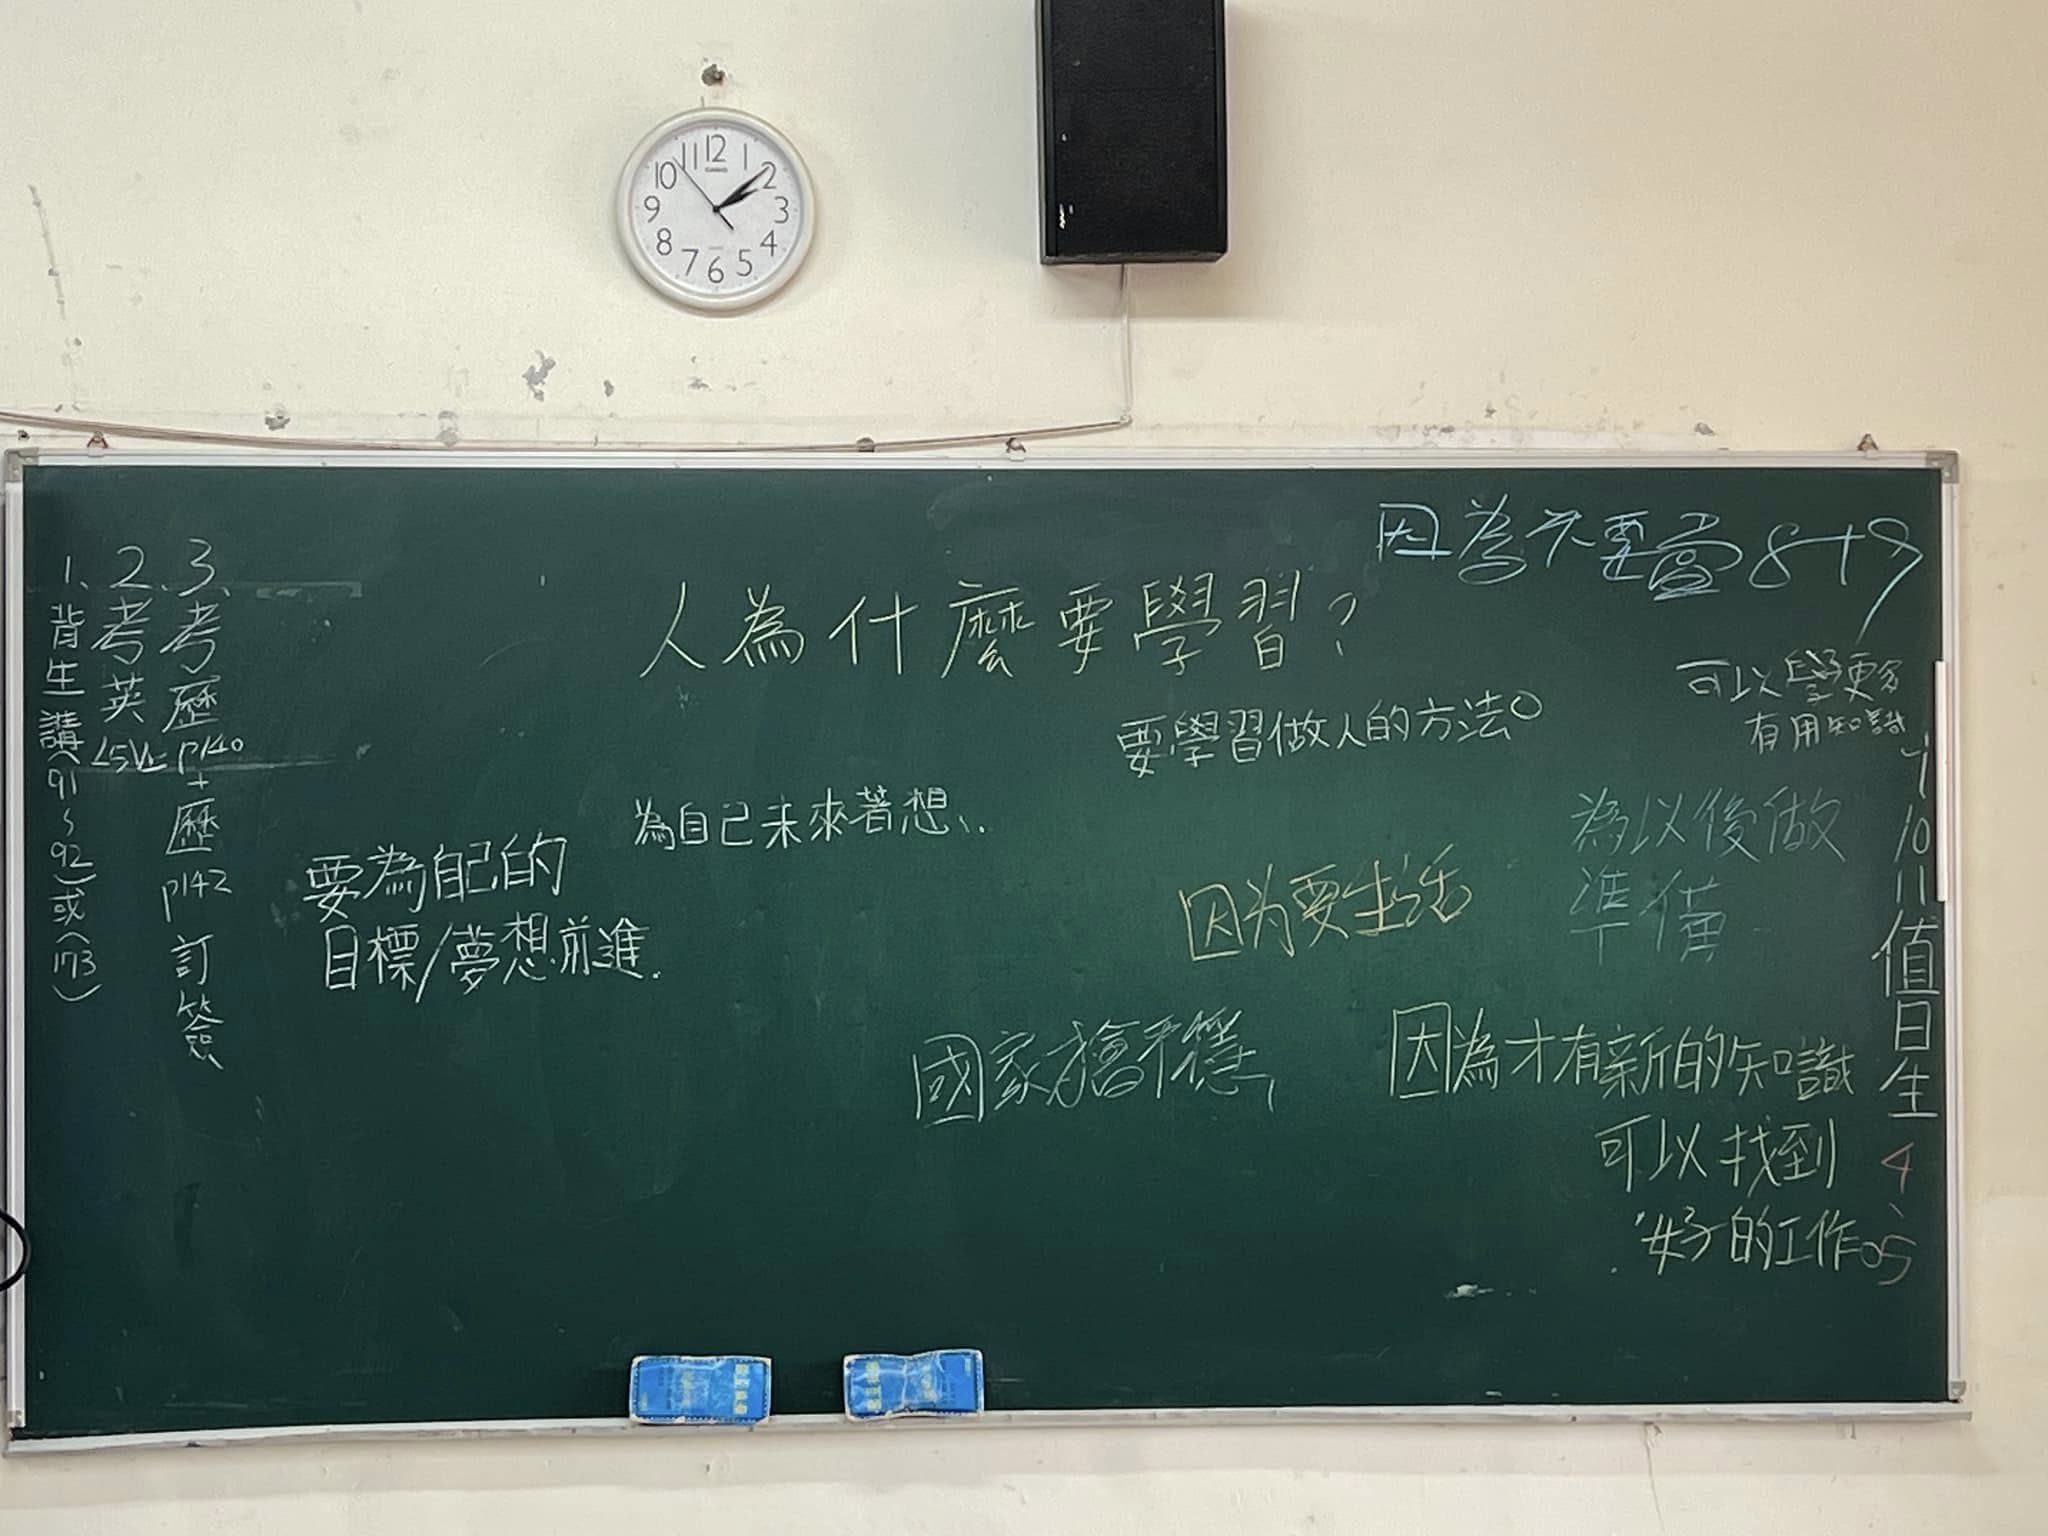 12
1
2
3
4
5
6
7
8
9
10
11
CASIO
1、背生講(91~92)或(173)
2、考英L5W
3、考歷p140+歷p142訂簽
人為什麼要學習?
因為不要當8+9
可以學更多
有用知識
要學習做人的方法。
為自己未來著想、.
要為自己的
目標/夢想前進.
因为要生活
為以後做
準備
國家擔
因為才有新的知識
可以找到
好的工作。
10
11
值日生
4、5